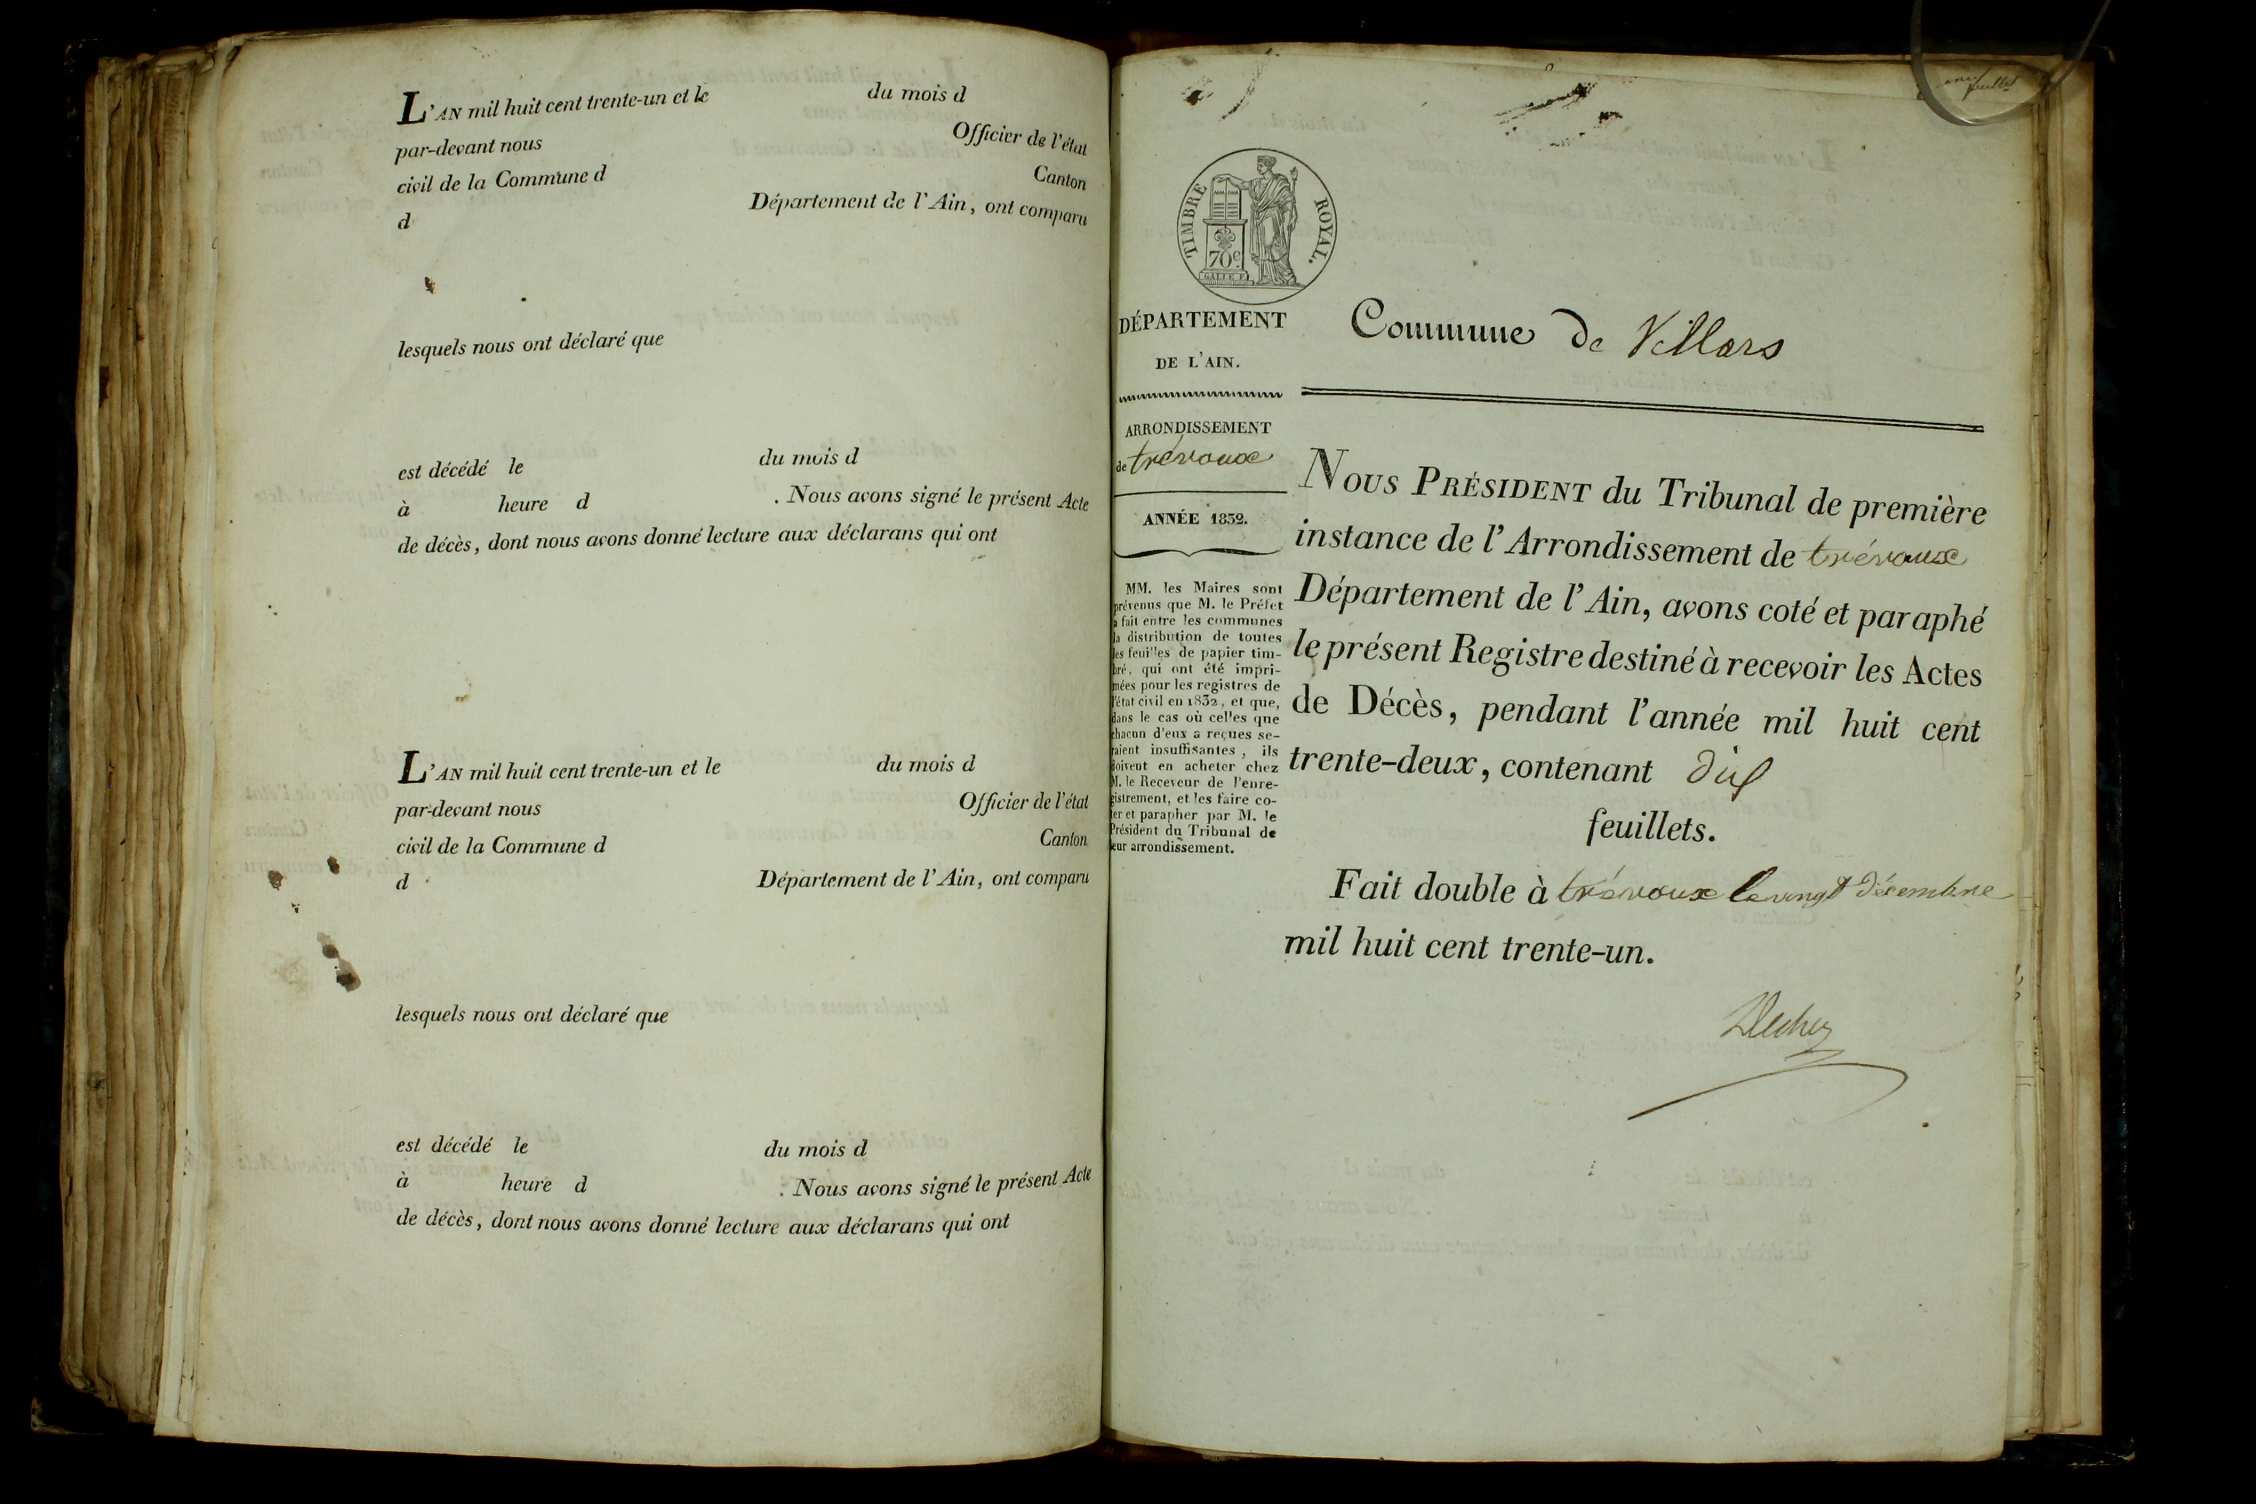 L'AN mil huit cent trente-un et le du mois d
par-devant nous Officier de l'état
civil de la Commune d Canton
d Département de l'Ain, ont comparu
lesquels nous ont déclaré que
est décédé le du mois d
à heure d . Nous avons signé le présent Acte
de décès, dont nous avons donné lecture aux déclarans qui ont
L'AN mil huit cent trente-un et le du mois d
par-devant nous Officier de l'état
civil de la Commune d Canton
d Département de l'Ain, ont comparu
lesquels nous ont déclaré que
est décédé le du mois d
à heure d . Nous avons signé le présent Acte
de décès, dont nous avons donné lecture aux déclarans qui ont
feuillet
TIMBRE ROYAL.
70c
DÉPARTEMENT
DE L'AIN.
ARRONDISSEMENT
de trévoux
ANNÉE 1832.
MM. les Maires sont
prévenus que M. le Préfet
a fait entre les communes
la distribution de toutes
les feuilles de papier tim-
bré, qui ont été impri-
mées pour les registres de
l'état civil en 1832, et que,
dans le cas où celles que
chacun d'eux a reçues se-
raient insuffisantes, ils
doivent en acheter chez
M. le Receveur de l'enre-
gistrement, et les faire co-
ter et parapher par M. le
Président du Tribunal de
leur arrondissement.
Commune de Villars
NOUS PRÉSIDENT du Tribunal de première
instance de l'Arrondissement de trévoux
Département de l'Ain, avons coté et paraphé
le présent Registre destiné à recevoir les Actes
de Décès, pendant l'année mil huit cent
trente-deux, contenant dix
feuillets.
Fait double à trévoux le vingt décembre
mil huit cent trente-un.